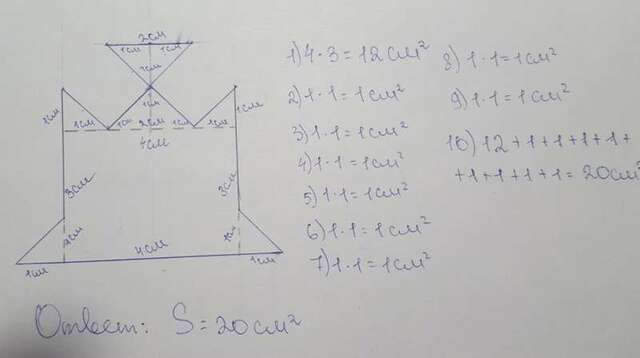 2см
1см 1см
1см
1см
1см
1см
1см 1см 2см 1см 1см
4см
3см
3см
1см
1см
4см
1см
1см
1) 4·3=12см²
2) 1·1=1см²
3) 1·1=1см²
4) 1·1=1см²
5) 1·1=1см²
6) 1·1=1см²
7) 1·1=1см²
8) 1·1=1см²
9) 1·1=1см²
10) 12+1+1+1+1+
+1+1+1+1=20см²
Ответ: S=20см²